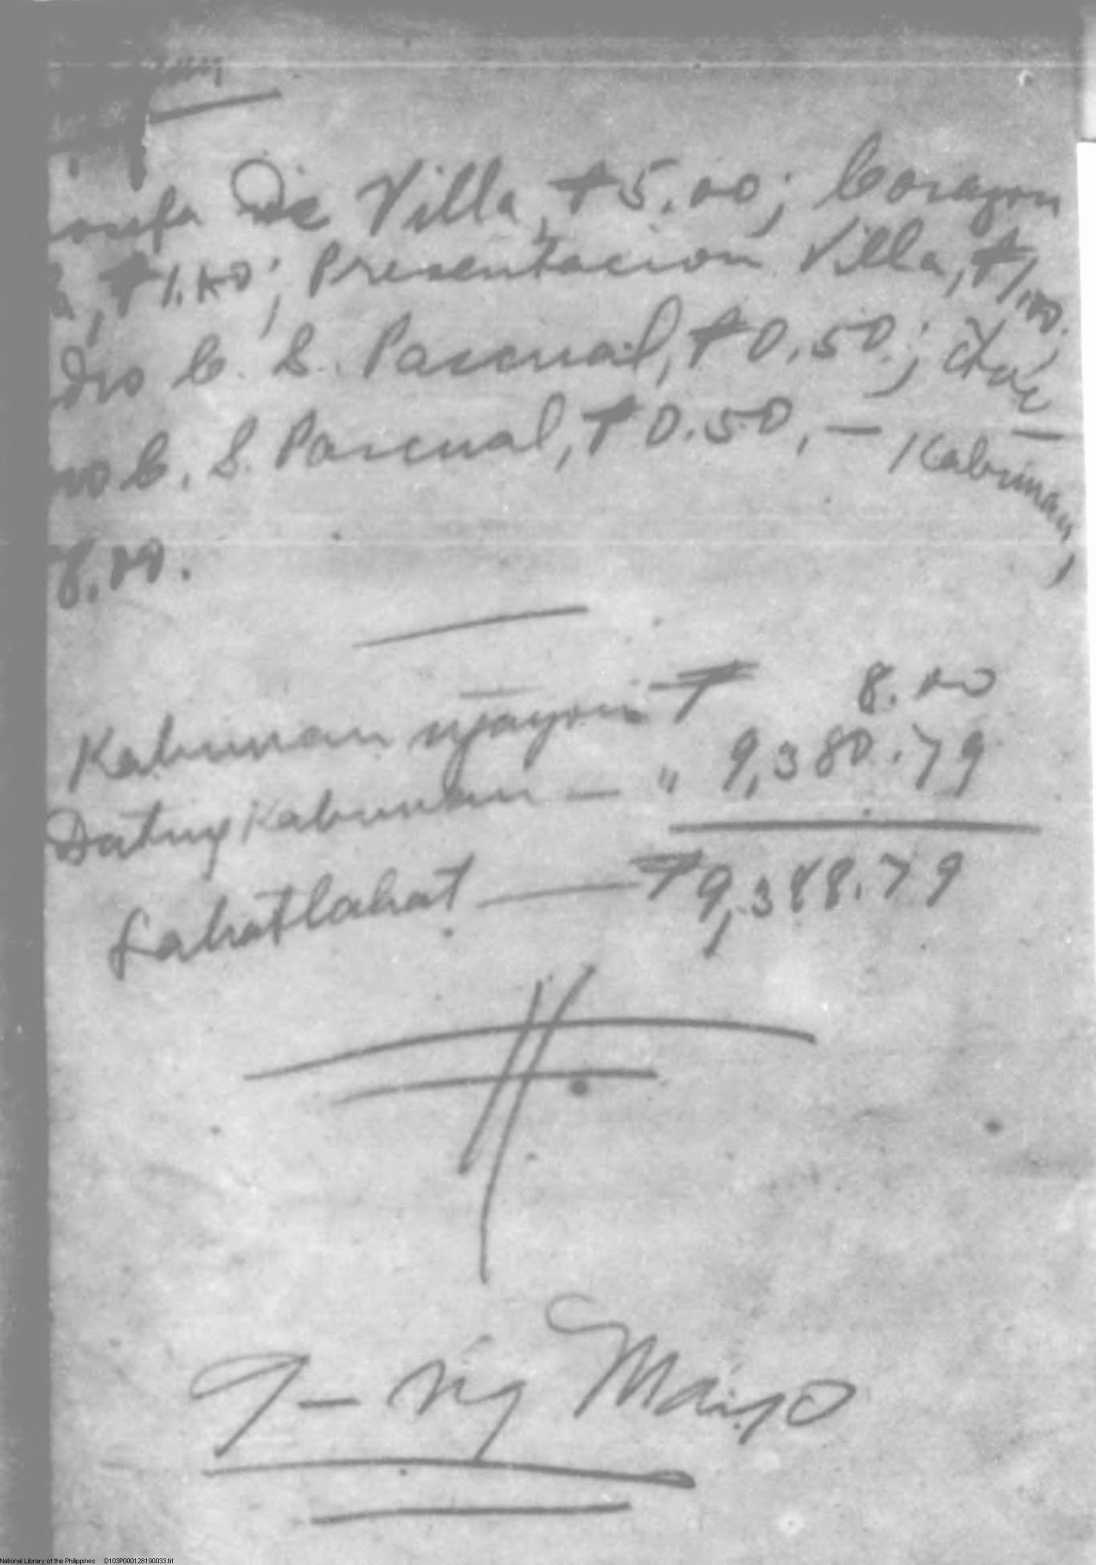 osefa De Villa, ₱5.00; Corazon
a, ₱1.00; Presentacion Villa, ₱1.00;
dro C. S. Pascual, ₱0.50;
no C. S. Pascual, ₱0.50, — Kabuuan,
8.00.
Kabuuan ngayon ₱ 8.00
Dating Kabuuan — " 9,380.79
Lahatlahat — ₱9,388.79
9 — ng Mayo
National Library of the Philippines